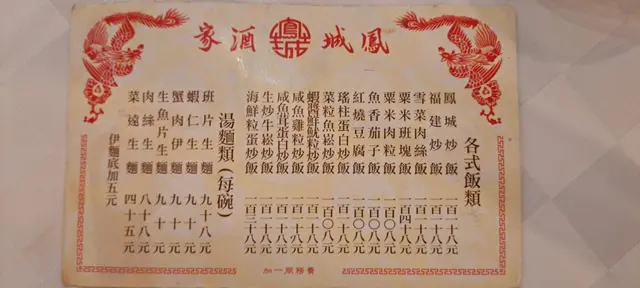 鳳城酒家
各式飯類
鳳城炒飯 一百十八元
福建炒飯 一百十八元
雪菜肉絲飯 一百十八元
粟米班塊飯 一百四十八元
粟米肉粒飯 一百〇八元
魚香茄子飯 一百〇八元
紅燒豆腐飯 一百〇八元
瑤柱蛋白炒飯 一百十八元
菜粒魚崧炒飯 一百〇八元
蝦醬鮮魷粒炒飯 一百十八元
咸魚雞粒炒飯 一百十八元
咸魚茸蛋白炒飯 一百十八元
生炒牛崧炒飯 一百十八元
海鮮粒蛋炒飯 一百三十八元
湯麵類(每碗)
班片生麵 九十八元
蝦仁生麵 九十元
蟹肉伊麵 九十元
生魚片生麵 九十元
肉絲生麵 八十八元
菜遠生麵 四十五元
伊麵底加五元
加一服務費